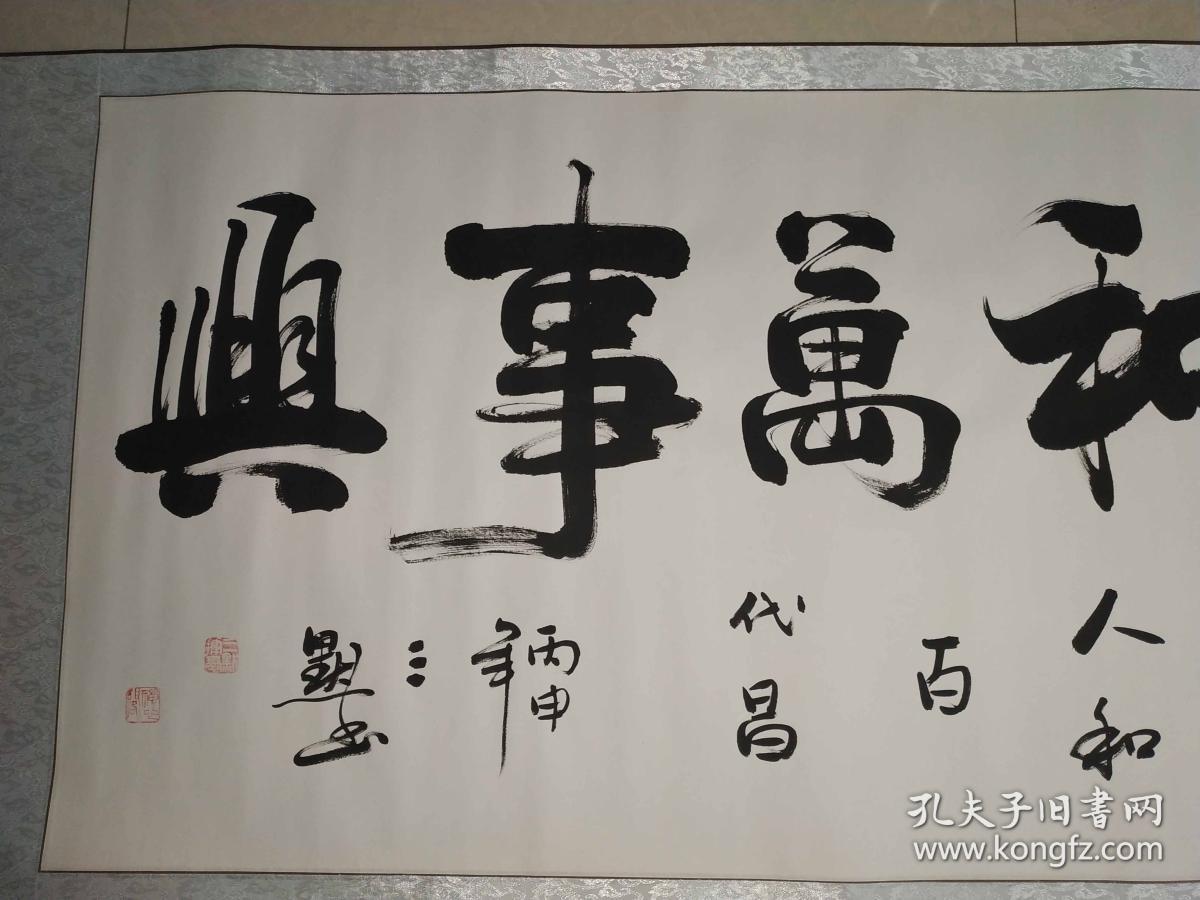 和萬事興
人和
百
代昌
丙申
年
三
默書
孔夫子旧書网
www.kongfz.com